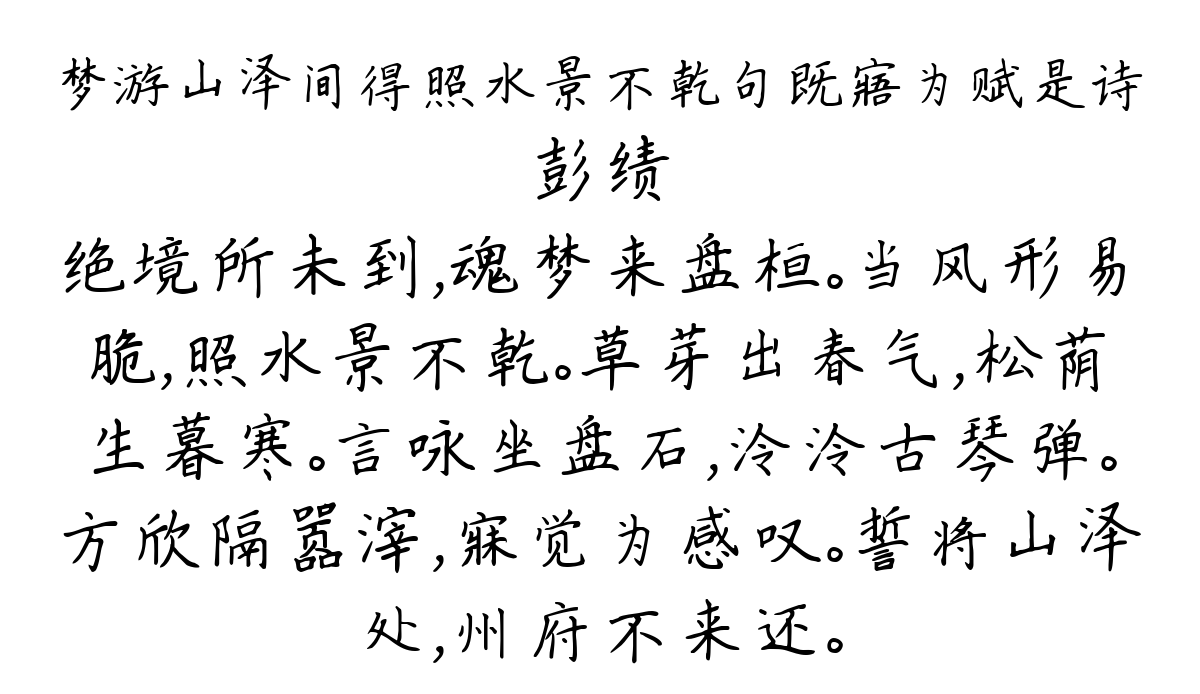 梦游山泽间得照水景不乾句既寤为赋是诗
彭绩
绝境所未到,魂梦来盘桓。当风形易
脆,照水景不乾。草芽出春气,松荫
生暮寒。言咏坐盘石,泠泠古琴弹。
方欣隔嚣滓,寐觉为感叹。誓将山泽
处,州府不来还。